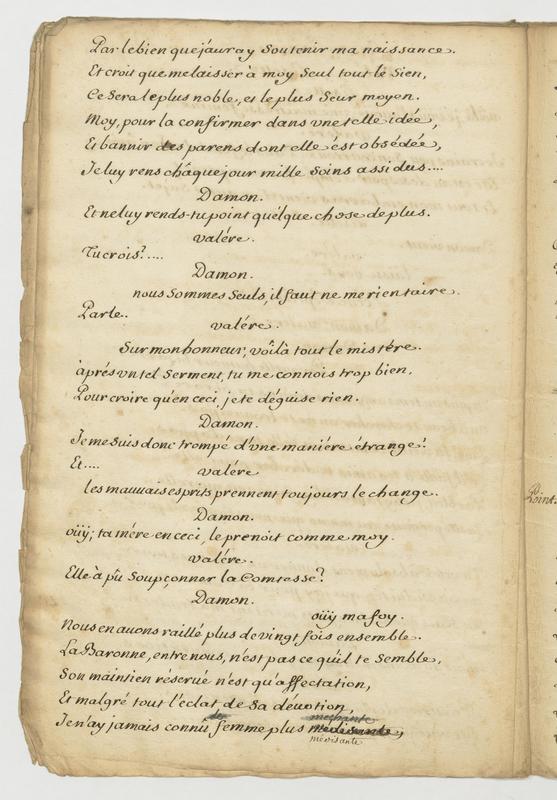 Par le bien que j'auray soutenir ma naissance.
Et croit que me laisser à moy seul tout le sien,
Ce sera le plus noble, et le plus seur moyen.
Moy, pour la confirmer dans une telle idée,
Et bannir des parens dont elle est obsédée,
Je luy rens châque jour mille soins assidus....
Damon.
Et ne luy rends-tu point quélque chose de plus.
Valére.
Tu crois?....
Damon.
nous sommes seuls, il faut ne me rien taire.
Parle..
Valére.
Sur mon honneur, voîlà tout le mistére.
àprés un tel serment, tu me connois trop bien,
Pour croire qu'en ceci, je te déguise rien.
Damon.
Je me suis donc trompé d'une maniére étrange!
Et....
Valére
les mauuais esprits prennent toujours le change.
Damon.
oüy; ta mére en ceci, le prenoit comme moy.
Valére.
Elle à pû soupçonner la Comtesse?
Damon.
oüy ma foy.
Nous en auons raillé plus de vingt fois ensemble.
La Baronne, entre nous, n'est pas ce qu'il te semble,
Son maintien réserué n'est qu'affectation,
Et malgré tout l'éclat de sa déuotion,
meschante
Je n'ay jamais connû femme plus medisante,
médisante
Point.